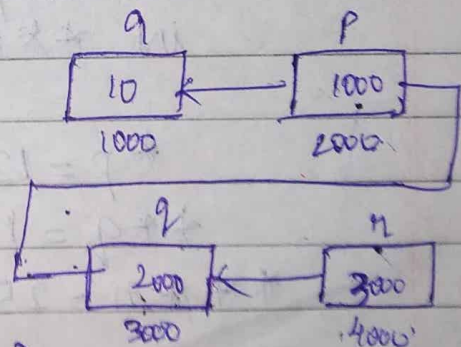 q p
10 1000
1000 2000
q r
2000 3000
3000 4000